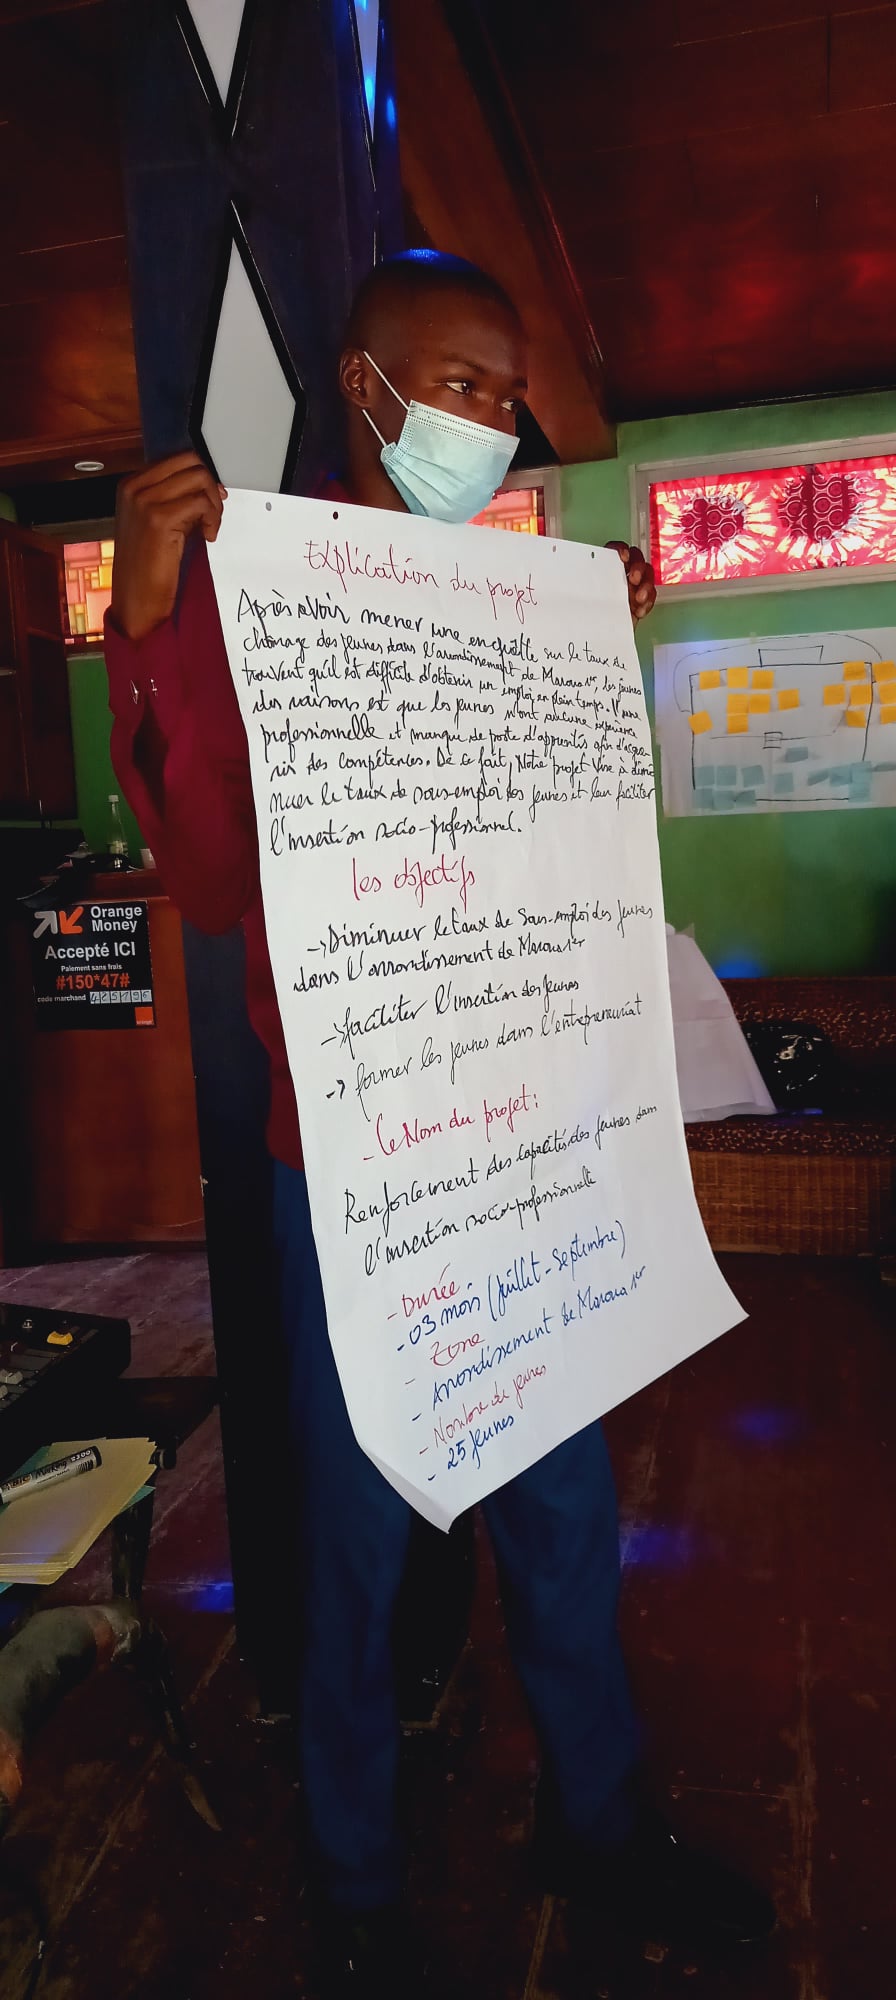 Explication du projet
Après avoir mener une enquête sur le taux de
chômage des jeunes dans l'arrondissement de Maroua 1er, les jeunes
trouvent qu'il est difficile d'obtenir un emploi en plein temps. L'une
des raisons est que les jeunes n'ont aucune expérience
professionnelle et manque de poste d'apprentis afin d'acqué-
rir des compétences. De ce fait, Notre projet vise à dimi-
nuer le taux de sous-emploi des jeunes et leur faciliter
l'insertion socio-professionnel.
les objectifs
-> Diminuer le taux de Sous-emploi des jeunes
dans l'arrondissement de Maroua 1er
-> faciliter l'insertion des jeunes
-> former les jeunes dans l'entrepreneuriat
- Le Nom du projet :
Renforcement des capacités des jeunes dans
l'insertion socio-professionnelle
- Durée
- 03 mois (juillet - Septembre)
- Zone
- Arrondissement de Maroua 1er
- Nombre de jeunes
- 25 jeunes
Orange
Money
Accepté ICI
Paiement sans frais
#150*47#
code marchand 425196
orange
Marking